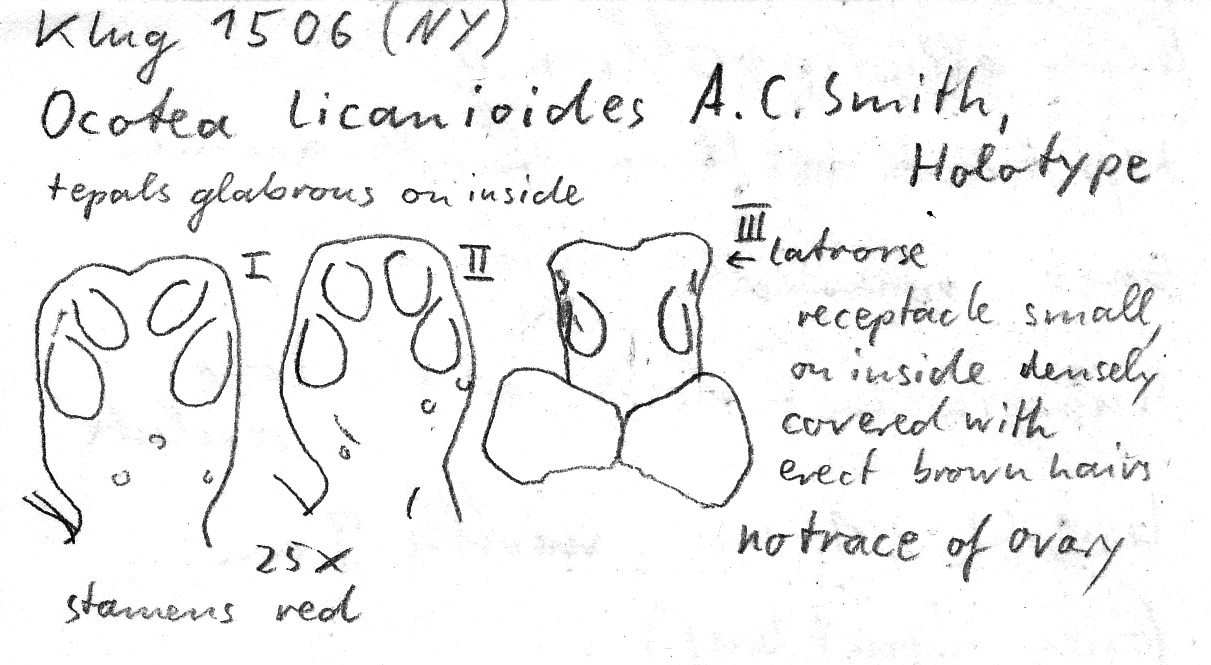 Klug 1506 (NY)
Ocotea licanioides A.C. Smith,
Holotype
tepals glabrous on inside
I
II
III
← latrorse
receptacle small,
on inside densely
covered with
erect brown hairs
no trace of ovary
25x
stamens red